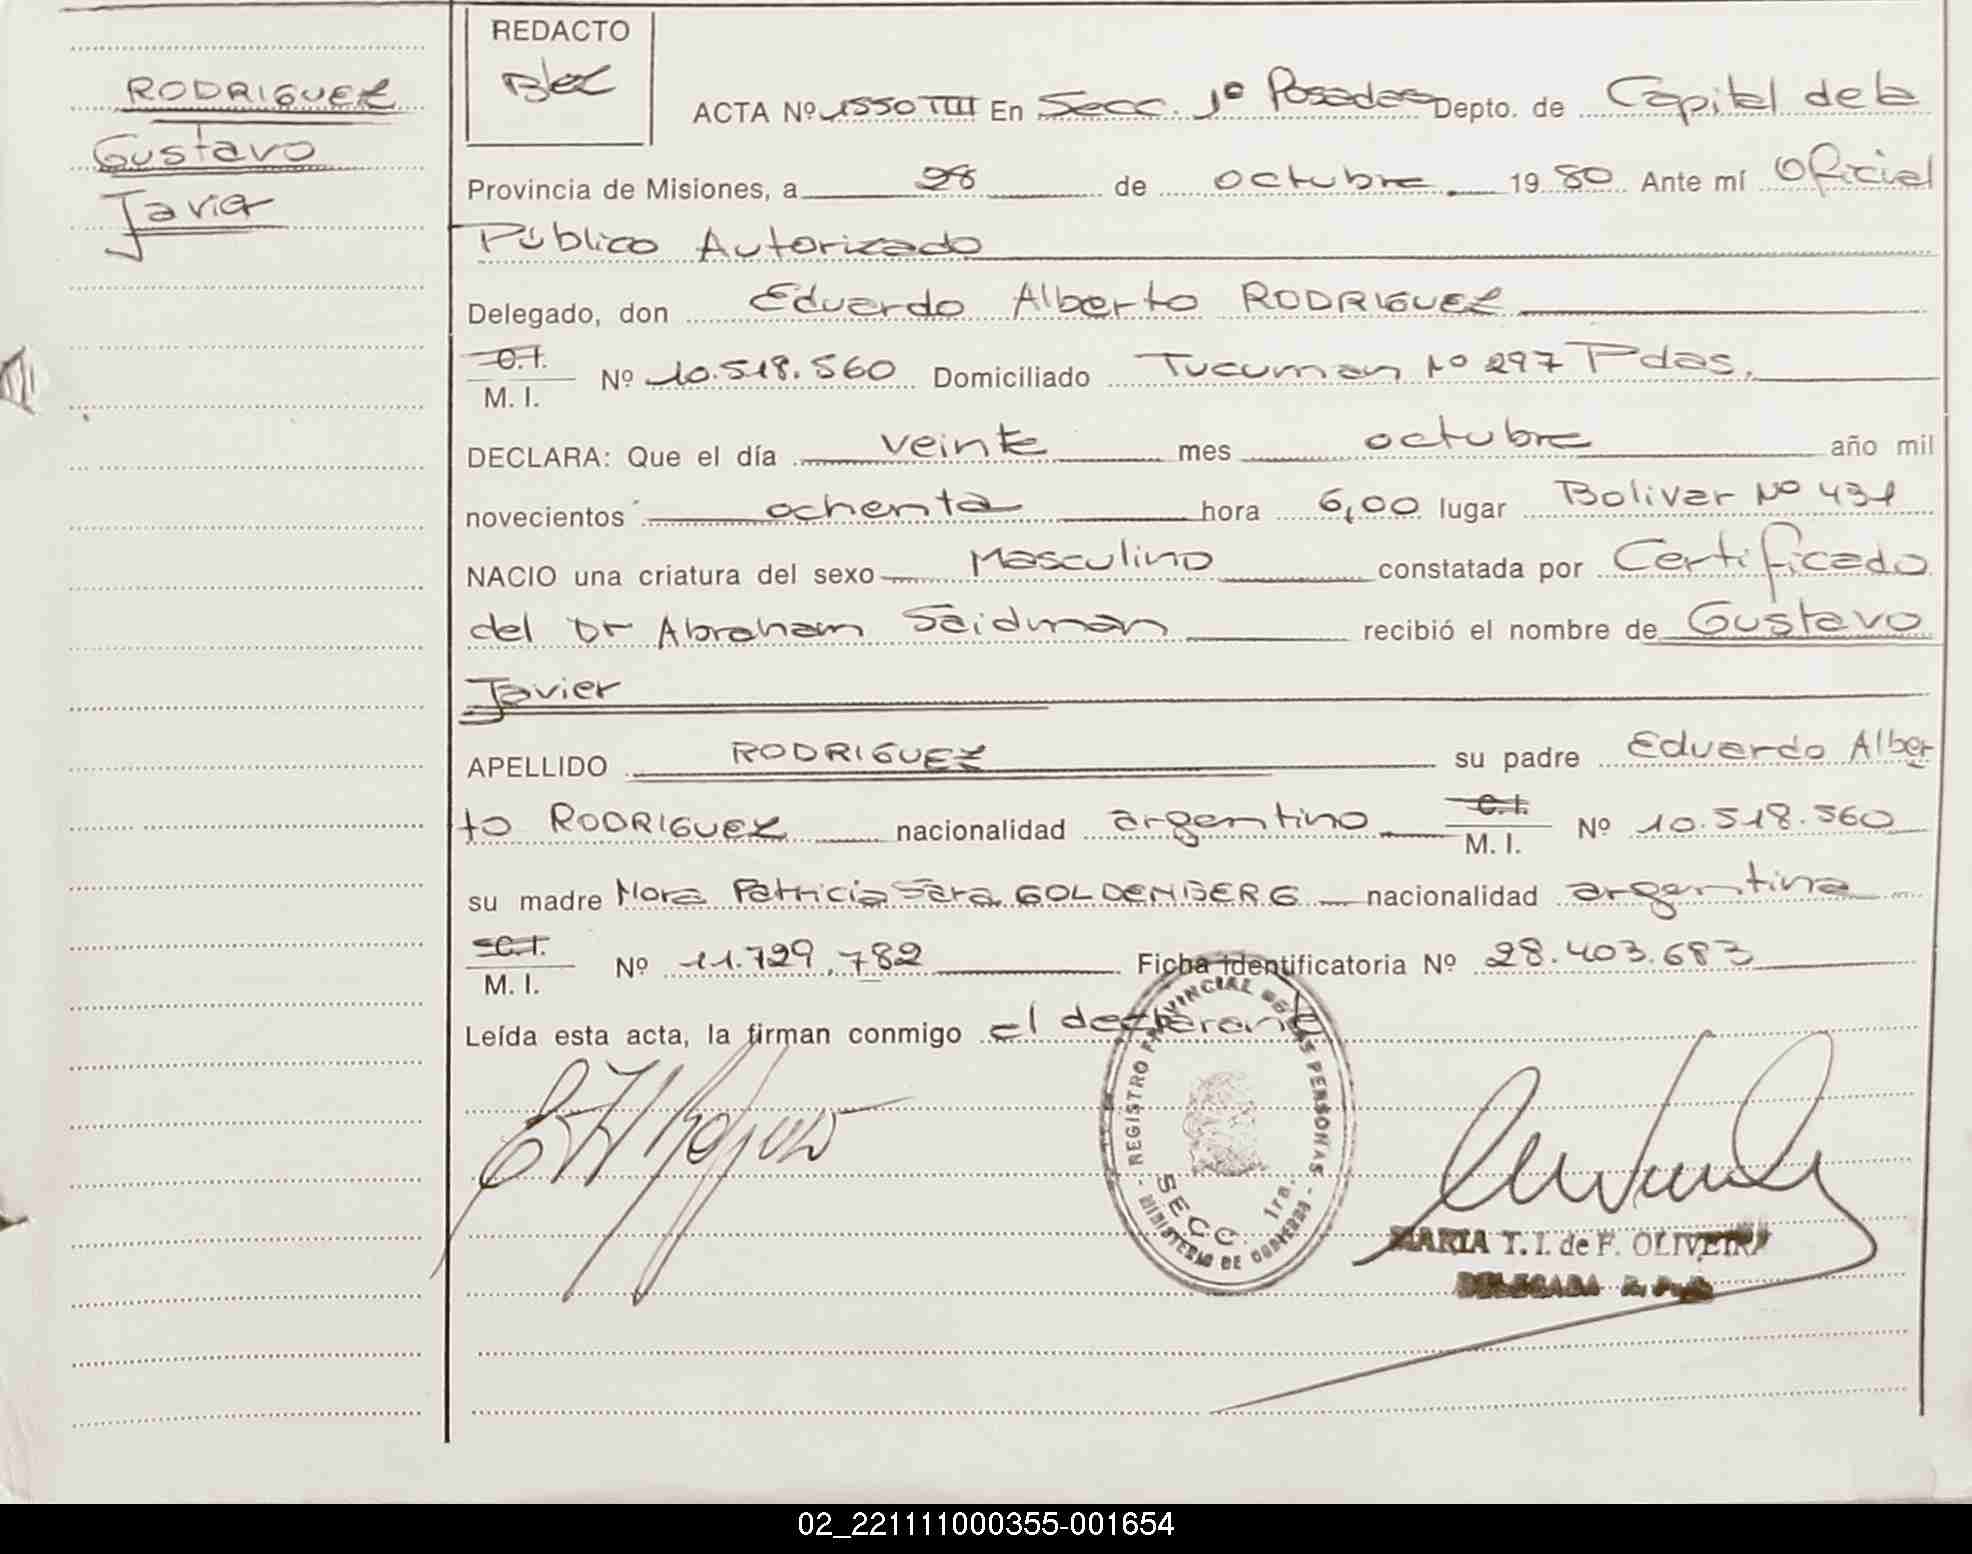 RODRIGUEZ
Gustavo
Javier
REDACTO
ACTA Nº 1550 TIII En Secc. 1º Posadas Depto. de Capital de la
Provincia de Misiones, a 28 de octubre 1980 Ante mí Oficial
Público Autorizado
Delegado, don Eduardo Alberto RODRIGUEZ
C.I.
M. I. Nº 10.518.560 Domiciliado Tucuman Nº 297 Pdas.
DECLARA: Que el día veinte mes octubre año mil
novecientos ochenta hora 6,00 lugar Bolivar Nº 431
NACIO una criatura del sexo Masculino constatada por Certificado
del Dr Abraham Saidman recibió el nombre de Gustavo
Javier
APELLIDO RODRIGUEZ su padre Eduardo Alber
to RODRIGUEZ nacionalidad argentino C.I. M. I. Nº 10.518.560
su madre Nora Patricia Sara GOLDENBERG nacionalidad argentina
C.I.
M. I. Nº 11.729.782 Ficha identificatoria Nº 28.403.683
Leída esta acta, la firman conmigo el declarante
REGISTRO PROVINCIAL DE LAS PERSONAS
SECC. 1ra.
MINISTERIO DE GOBIERNO
MARIA T. I. de F. OLIVEIRA
DELEGADA
02_221111000355-001654